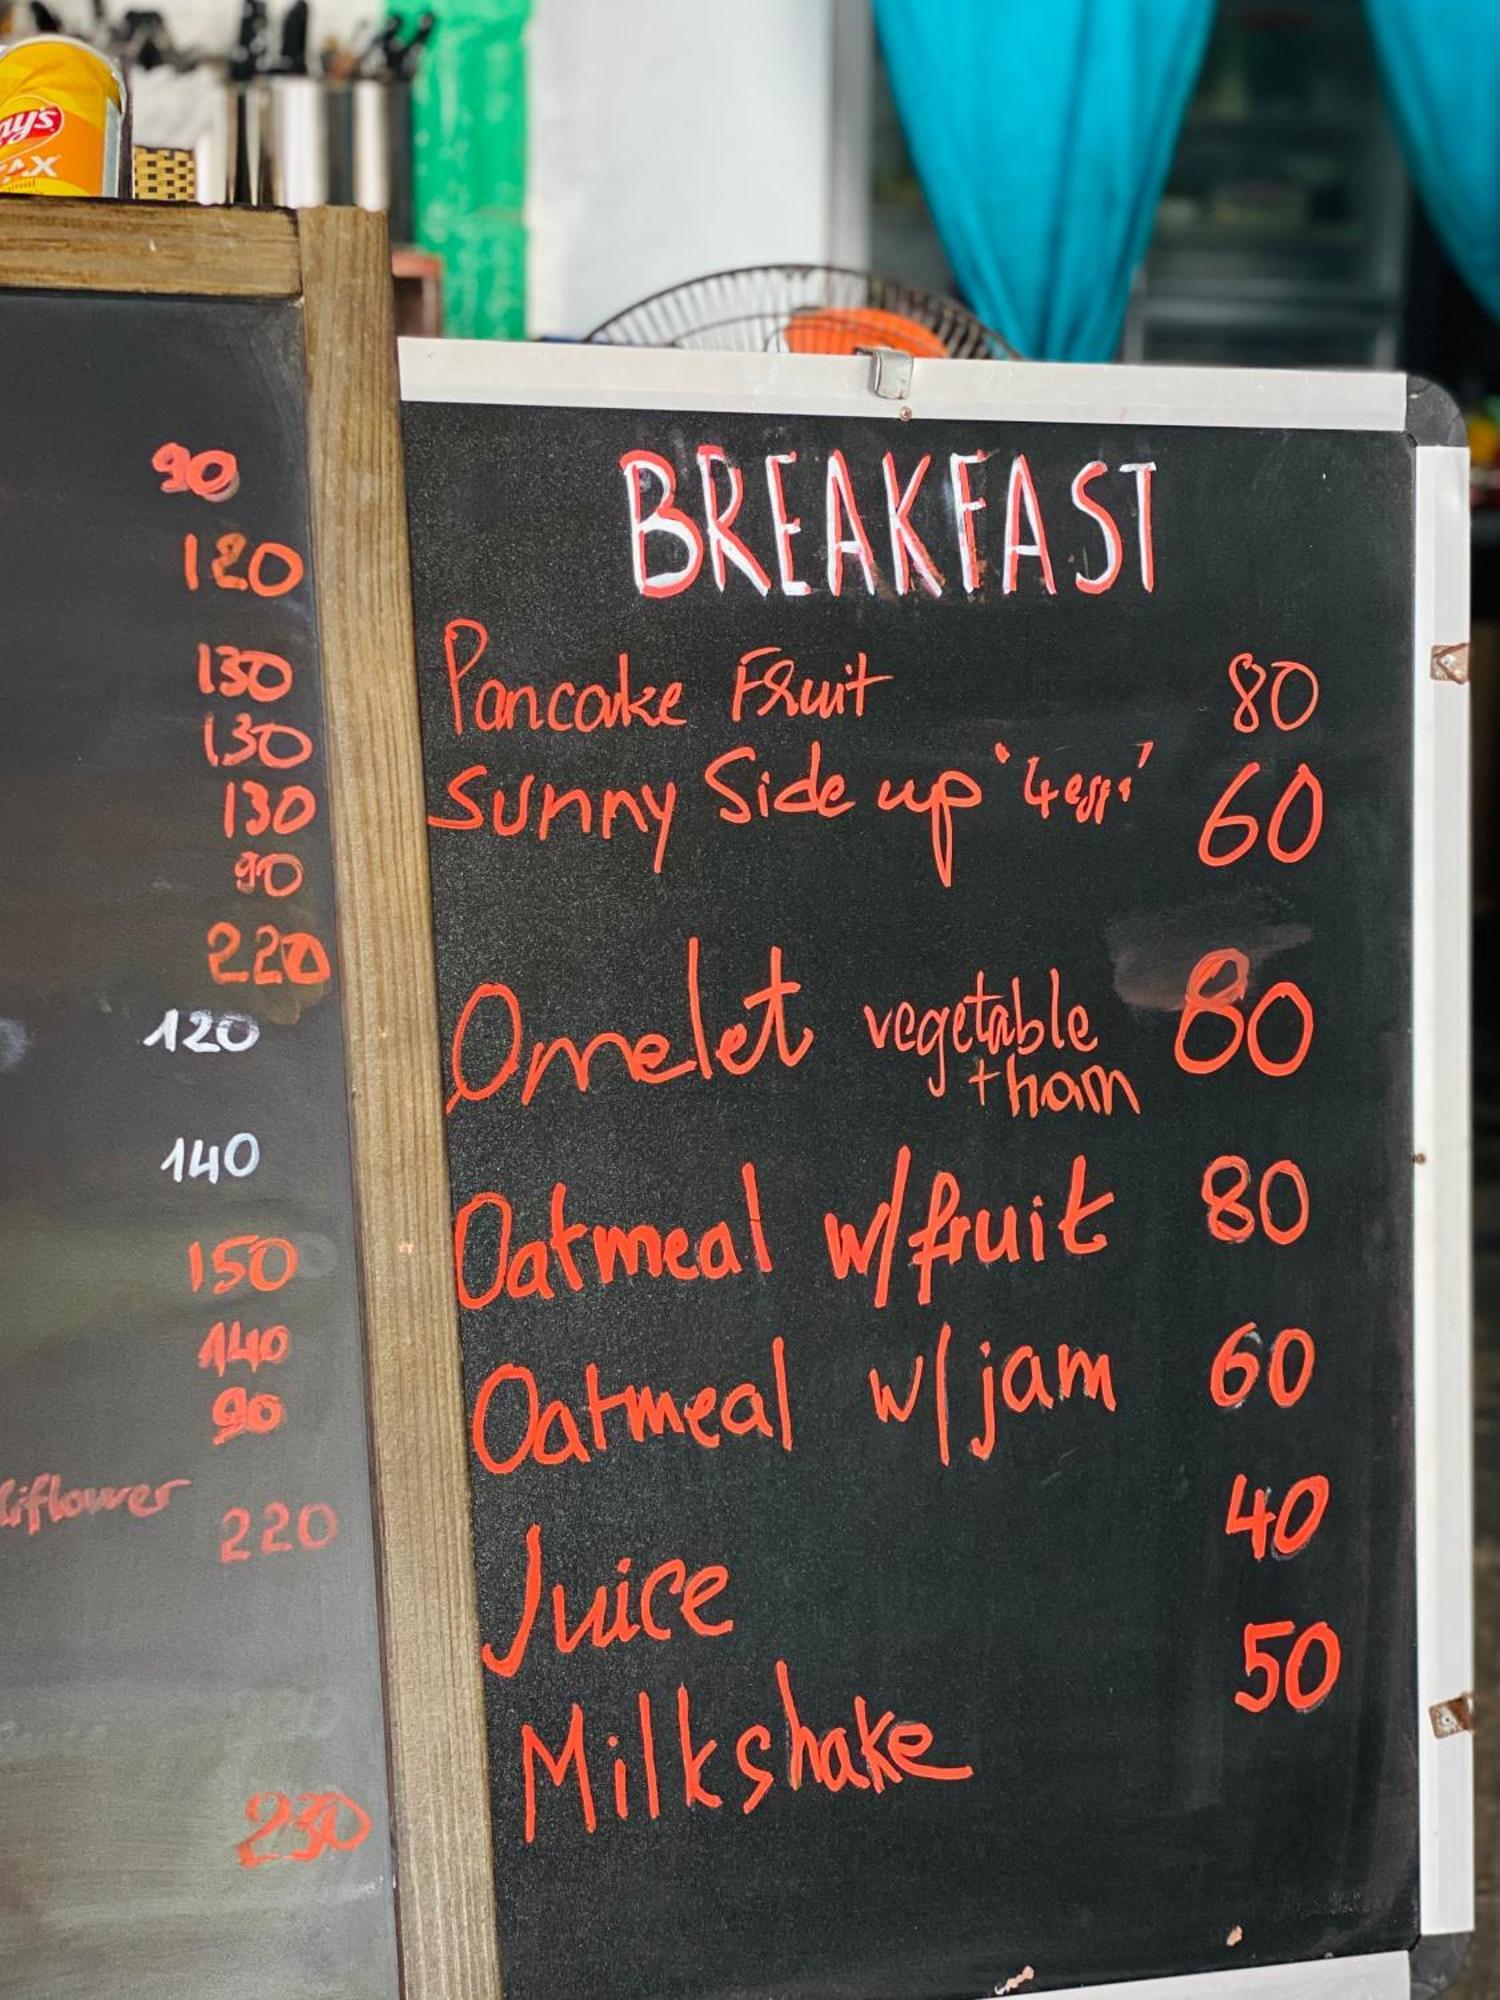 ay's
AX
90
120
130
130
130
90
220
120
140
150
140
90
liflower 220
230
BREAKFAST
Pancake Fruit 80
Sunny Side up '4 eggs' 60
Omelet vegetable 80
+ ham
Oatmeal w/fruit 80
Oatmeal w/jam 60
Juice 40
Milkshake 50